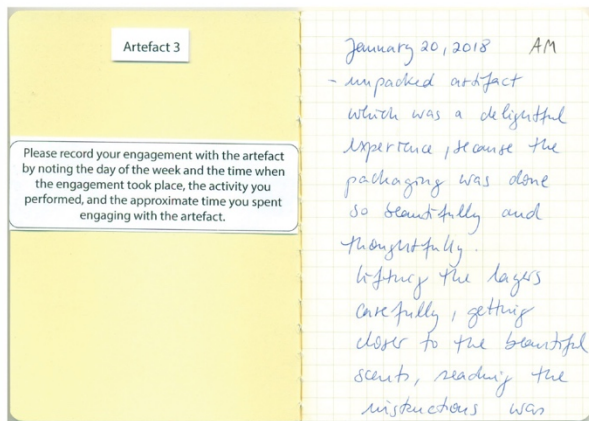 Artefact 3
Please record your engagement with the artefact
by noting the day of the week and the time when
the engagement took place, the activity you
performed, and the approximate time you spent
engaging with the artefact.
January 20, 2018 AM
- unpacked artifact
which was a delightful
experience, because the
packaging was done
so beautifully and
thoughtfully.
lifting the layers
carefully, getting
closer to the beautiful
scents, reading the
instructions was